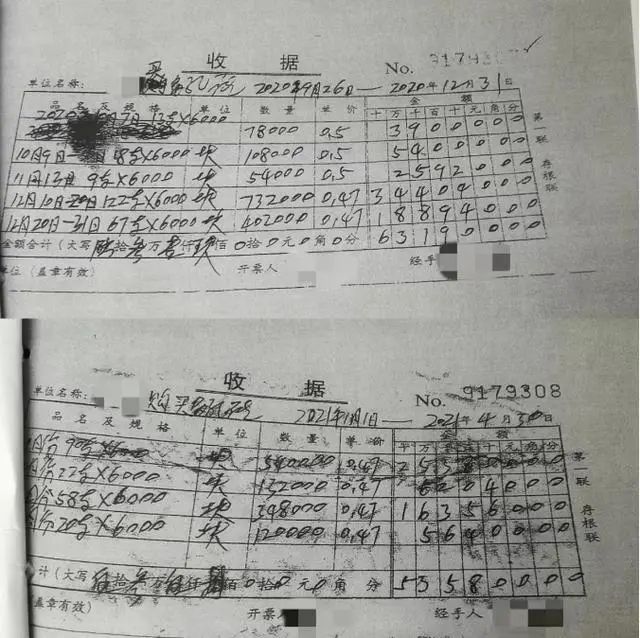 收据
No. 9179308
单位名称: 2020年9月26日 — 2020年12月31日
品名及规格 单位 数量 单价 金额
十万千百十元角分
2020年10月7日 13车×6000 78000 0.5 3 9 0 0 0 0 0
10月9日 18车×6000 块 108000 0.5 5 4 0 0 0 0 0
11月13日 9车×6000 块 54000 0.5 2 5 9 2 0 0 0 0
12月10日-20日 122车×6000 块 732000 0.47 3 4 4 0 4 0 0 0
12月20日-31日 67车×6000 块 402000 0.47 1 8 8 9 4 0 0 0
金额合计(大写) 陆拾叁万壹仟玖佰0拾0元0角0分 6 3 1 9 0 0 0 0
第一联 存根联
单位(盖章有效) 开票人 经手
收据
No. 9179308
单位名称: 购买 2021年1月1日 — 2021年4月30日
品名及规格 单位 数量 单价 金额
万千百十元角分
月份 90车×6000 块 540000 0.47 2 5 3 8 0 0 0 0
月份 22车×6000 块 132000 0.47 6 2 0 4 0 0 0
月份 58车×6000 块 348000 0.47 1 6 3 5 6 0 0 0
月份 20车×6000 块 120000 0.47 5 6 4 0 0 0 0
计(大写) 伍拾叁万伍仟捌佰0拾0元0角 分 5 3 5 8 0 0 0 0
第一联 存根联
(盖章有效) 开票人 经手人